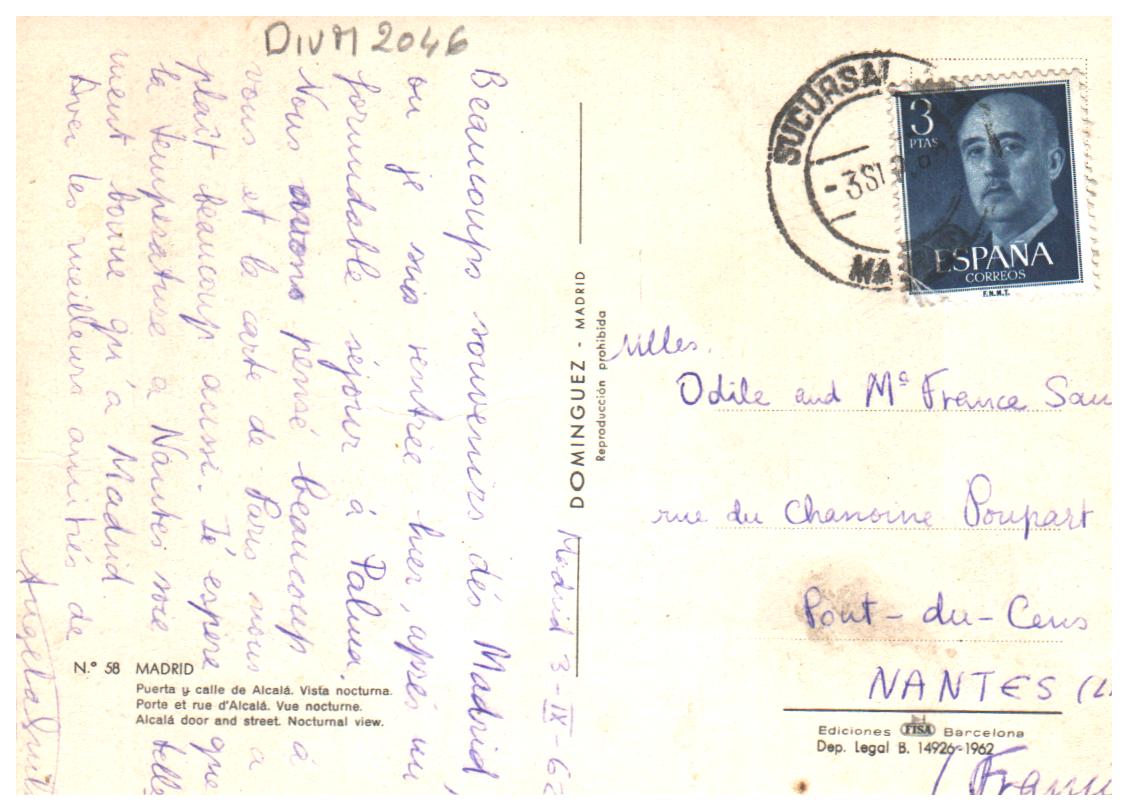 DIVM 2046
Madrid 3-IX-62
Beaucoups souvenirs dés Madrid,
ou je suis rentrée hier, aprés un
formidable séjour á Palma.
Nous avons pensé beaucoup á
vous et la carte de Paris nous a
plaît beaucoup aussi. Jé espére que
la temperature a Nantes soie telle
ment bonne qu'a Madrid.
Avec les meilleurs amitiés de
Angela
N.º 58 MADRID
Puerta y calle de Alcalá. Vista nocturna.
Porte et rue d'Alcalá. Vue nocturne.
Alcalá door and street. Nocturnal view.
DOMINGUEZ - MADRID
Reproducción prohibida
SUCURSAL
-3 SI
MA
3
PTAS
ESPAÑA
CORREOS
F.N.M.T.
Mlles.
Odile and Mª France Sau
rue du Chanoine Poupart
Pont-du-Cens
NANTES (L
(Franc
Ediciones FISA Barcelona
Dep. Legal B. 14926-1962